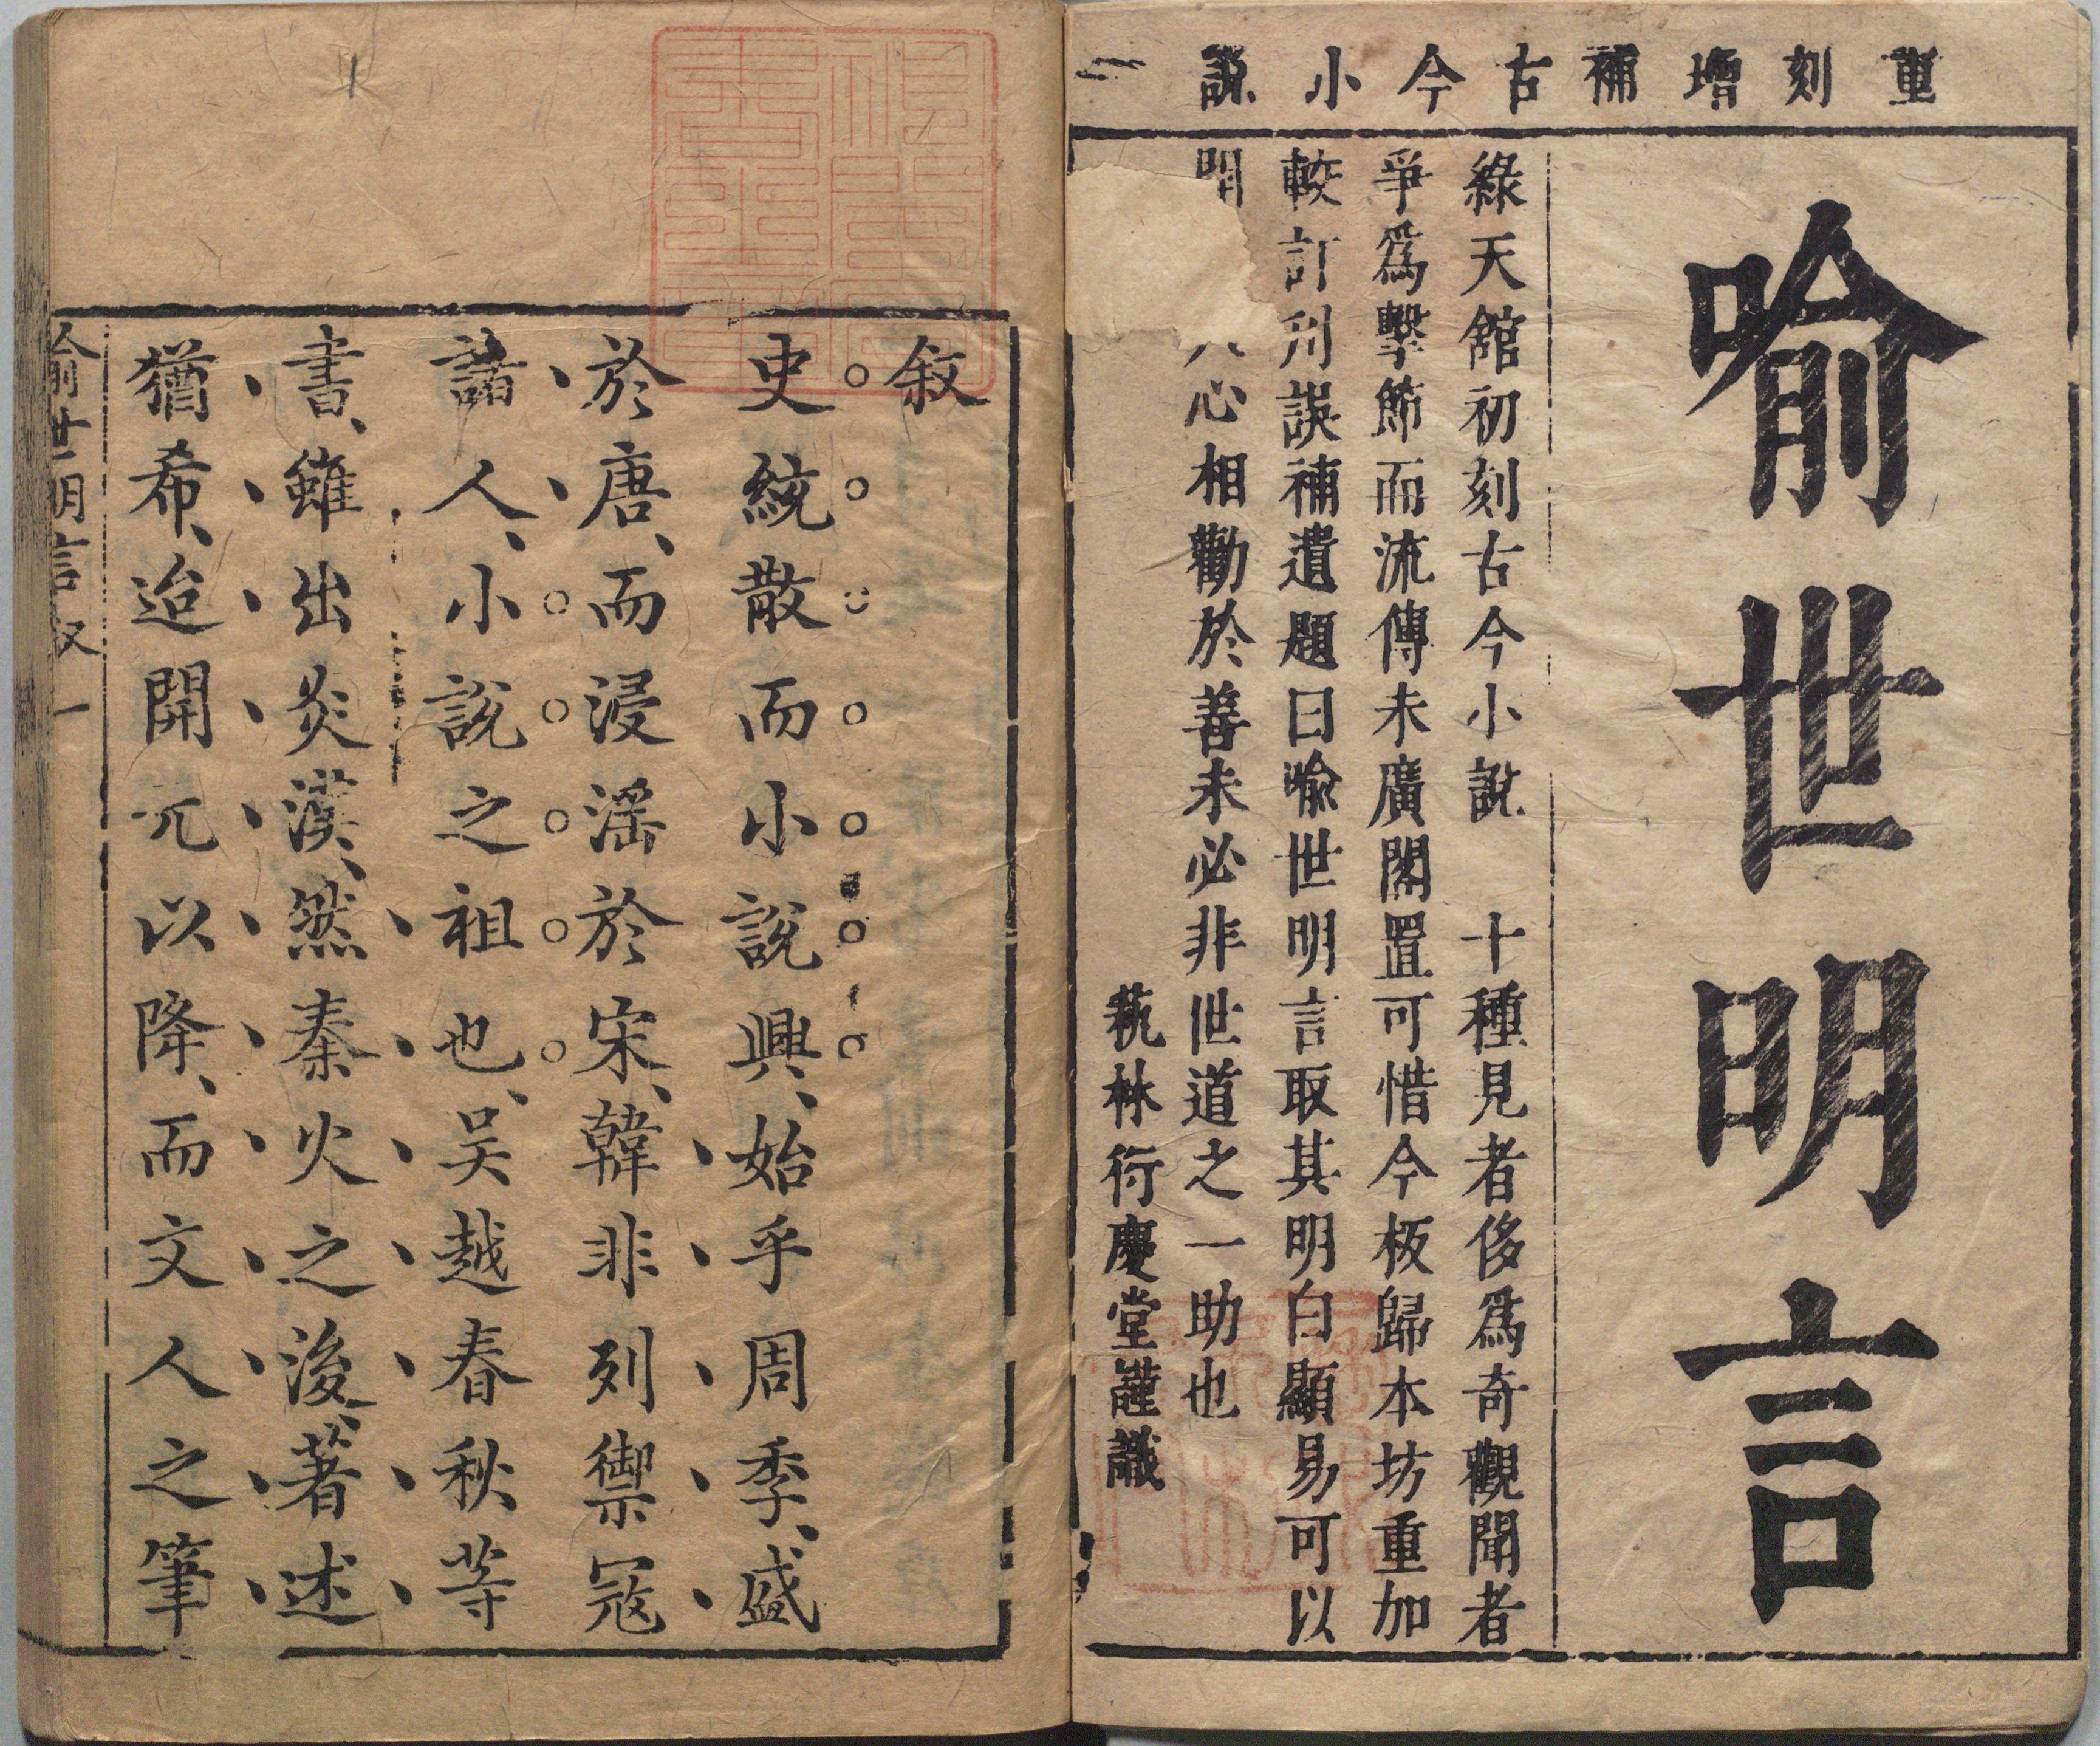 重刻增補古今小説二
喻世明言
綠天館初刻古今小說 十種見者侈為奇觀聞者
爭為擊節而流傳未廣閣置可惜今板歸本坊重加
較訂刊誤補遺題曰喻世明言取其明白顯易可以
開 人心相勸於善未必非世道之一助也
蓺林衍慶堂謹識
叙
史統散而小說興、始乎周季、盛
於唐、而浸淫於宋、韓非列禦冦
諸人、小說之祖也、吴越春秋等
書、雖出炎漢、然秦火之後、著述
猶希、迨開元以降、而文人之筆
喻世明言叙 一